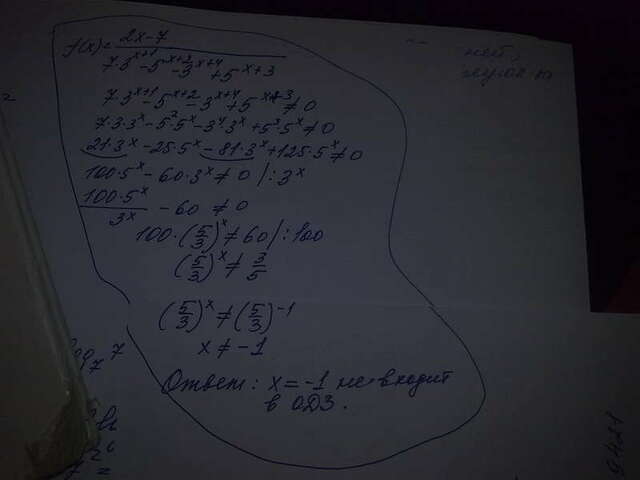 f(x)= 2x-7
7·3^x+1 -5^x+2 -3^x+4 +5^x+3
7·3^x+1 -5^x+2 -3^x+4 +5^x+3 ≠0
7·3·3^x -5²·5^x -3⁴·3^x +5³·5^x ≠0
21·3^x -25·5^x -81·3^x +125·5^x ≠0
100·5^x -60·3^x ≠0 |:3^x
100·5^x
3^x
-60 ≠0
100·(5/3)^x ≠60 |:100
(5/3)^x ≠ 3/5
(5/3)^x ≠ (5/3)^-1
x ≠ -1
Ответ: x=-1 не входит
в ОДЗ.